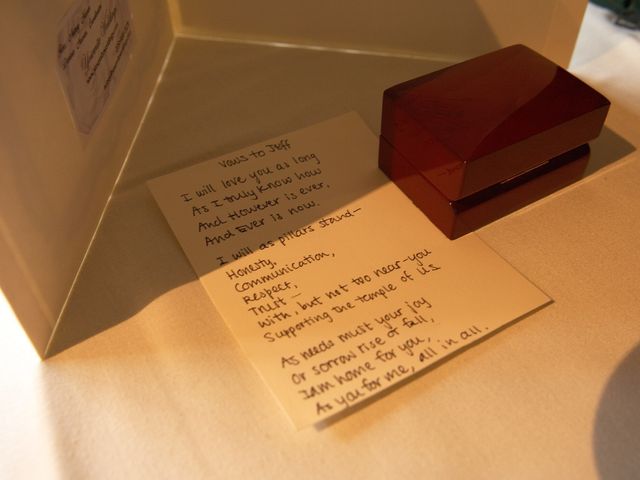 vows to Jeff
I will love you as long
As I truly know how
And However is ever,
And Ever is now.
I will as pillars stand—
Honesty,
Communication,
Respect,
Trust—
With, but not too near-you
Supporting the temple of us
As needs must your joy
Or sorrow rise or fall,
I am home for you,
As you for me, all in all.